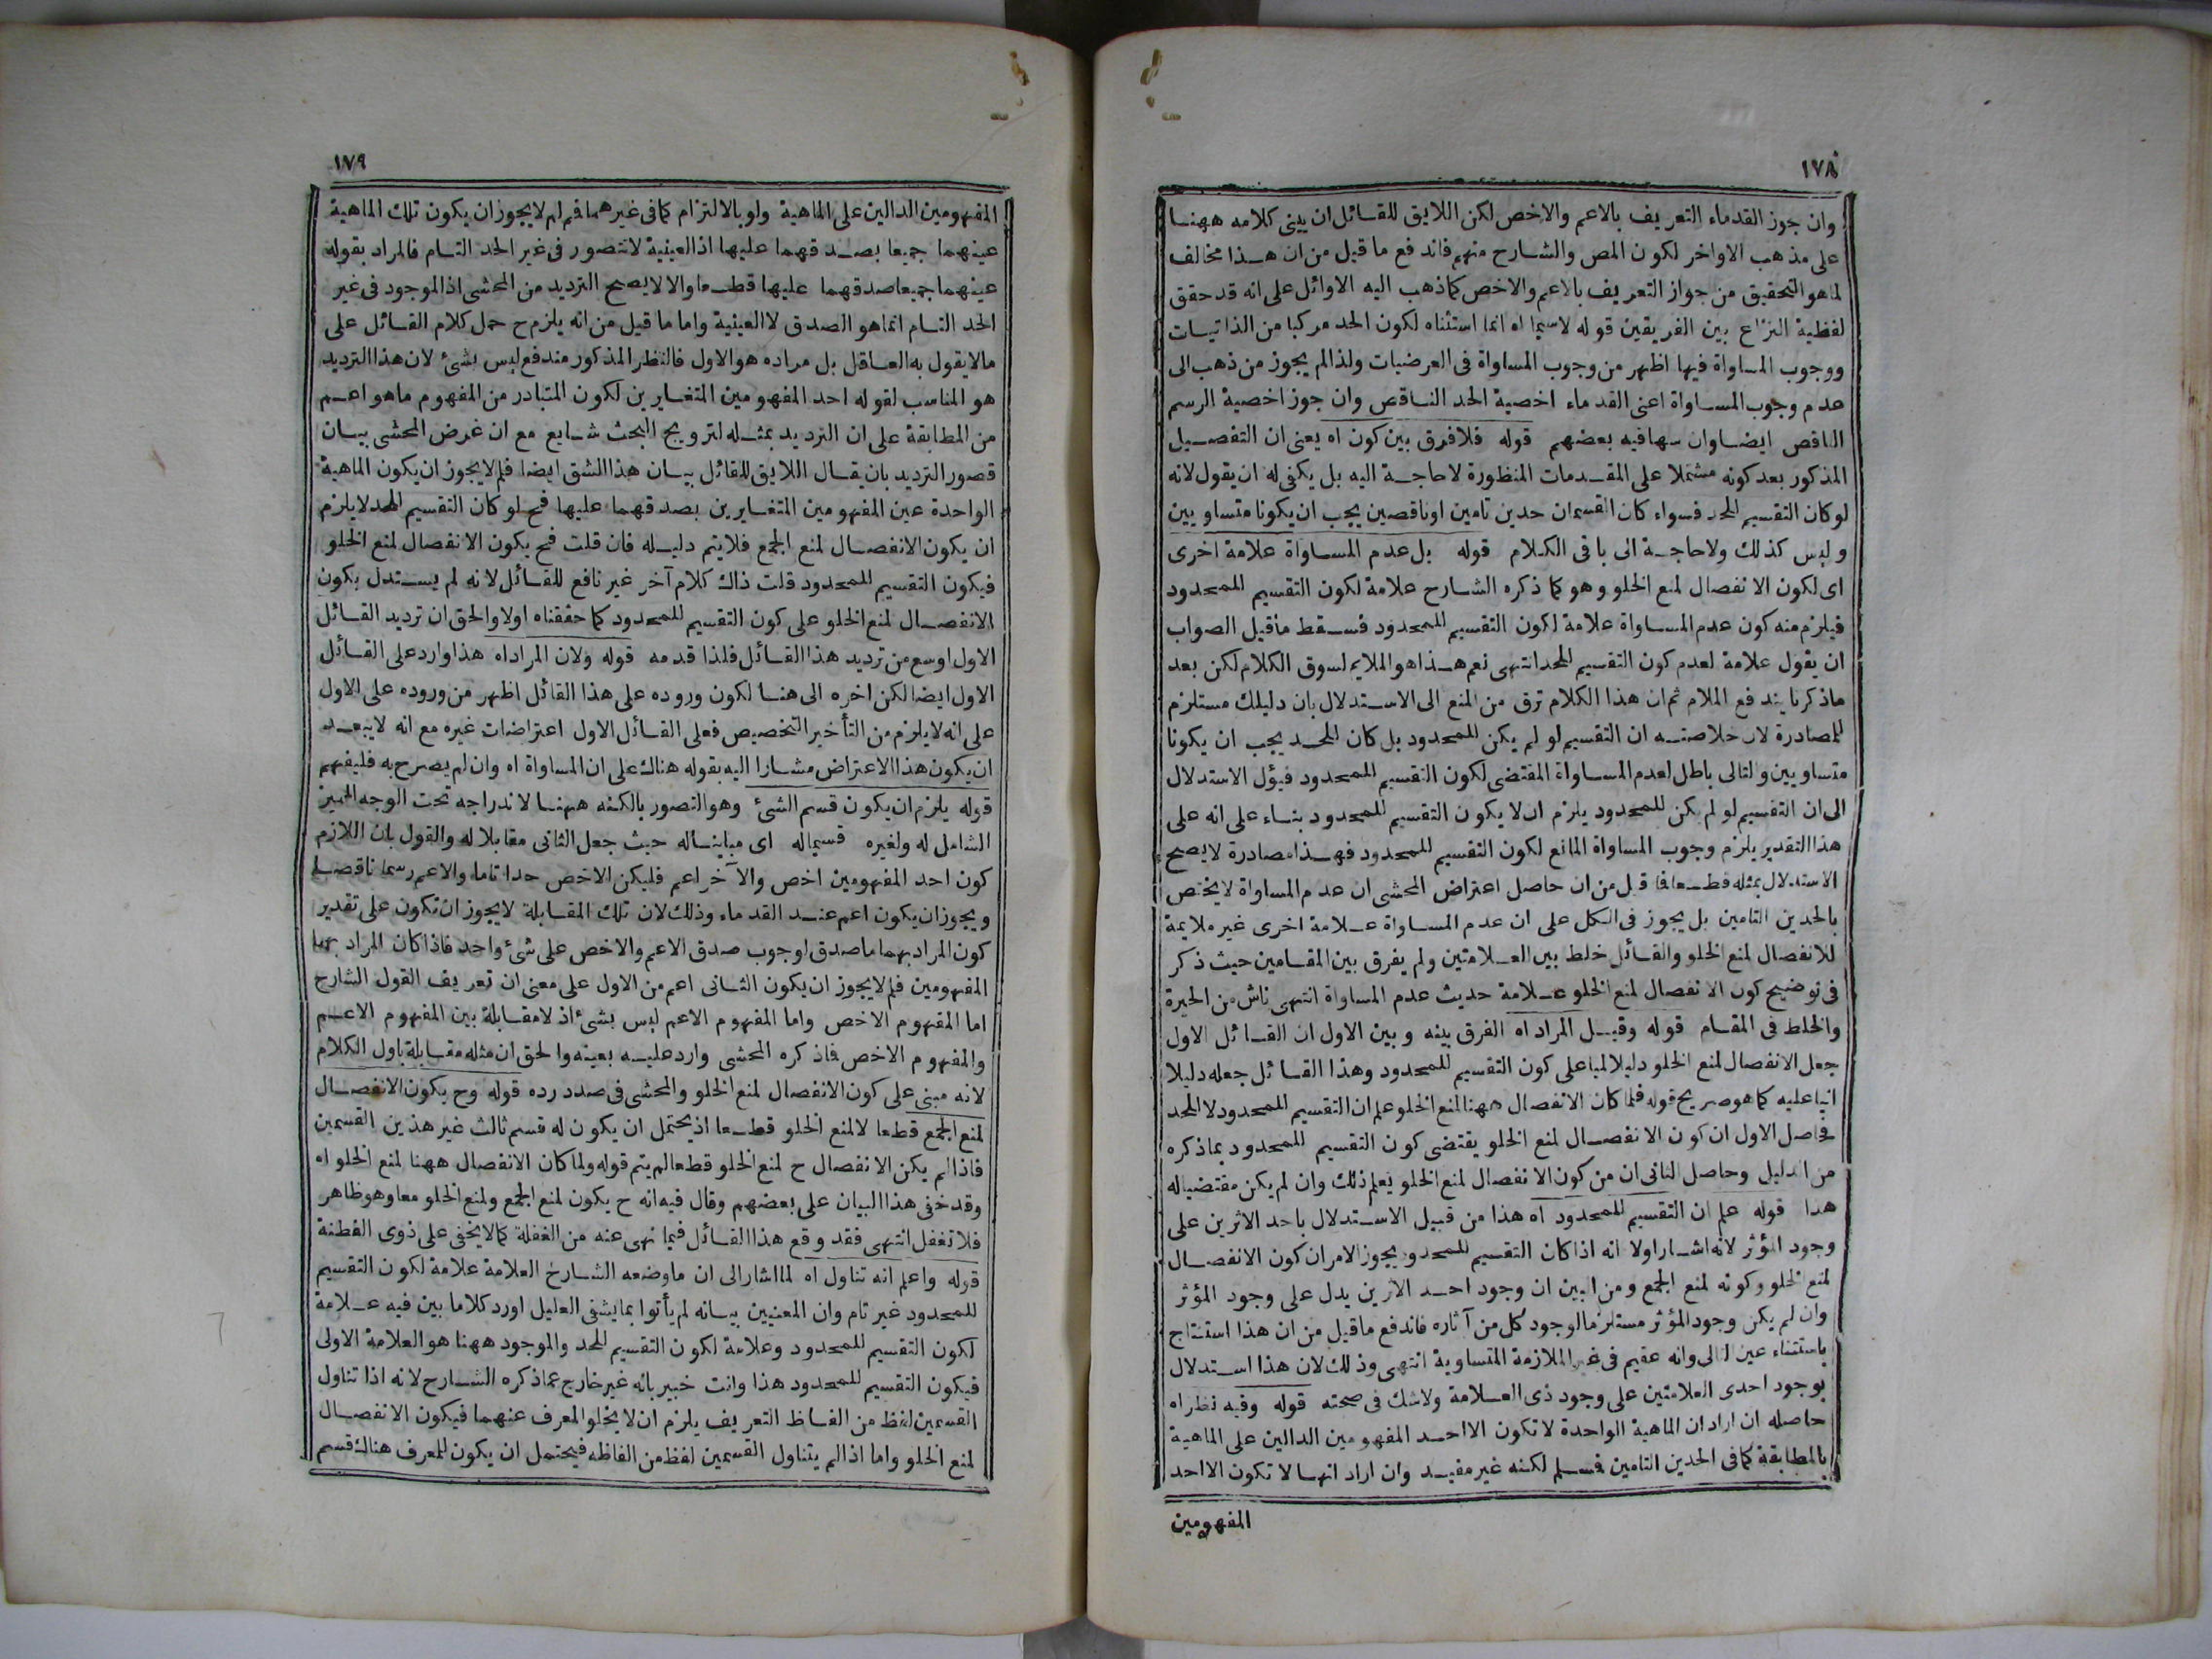 ١٧٨
وان جوز القدماء التعريف بالاعم والاخص لكن اللايق للقائل ان يبنى كلامه ههنا
على مذهب الاواخر لكون المص والشارح منهم فاندفع ما قيل من ان هذا مخالف
لما هو التحقيق من جواز التعريف بالاعم والاخص كما ذهب اليه الاوائل على انه قد حقق
لفظية النزاع بين الفريقين قوله لاسيما اه انما استثناه لكون الحد مركبا من الذاتيات
ووجوب المساواة فيها اظهر من وجوب المساواة فى العرضيات ولذا لم يجوز من ذهب الى
عدم وجوب المساواة اعنى القدماء اخصية الحد الناقص وان جوز اخصية الرسم
الناقص ايضا وان سها فيه بعضهم قوله فلا فرق بين كون اه يعنى ان التفصيل
المذكور بعد كونه مشتملا على المقدمات المنظورة لا حاجة اليه بل يكفى له ان يقول لانه
لو كان التقسيم للحد فسواء كان القسمان حدين تامين او ناقصين يجب ان يكونا متساويين
وليس كذلك ولا حاجة الى باقى الكلام قوله بل عدم المساواة علامة اخرى
اى لكون الانفصال لمنع الخلو وهو كما ذكره الشارح علامة لكون التقسيم للمحدود
فيلزم منه كون عدم المساواة علامة لكون التقسيم للمحدود فسقط ما قيل الصواب
ان يقول علامة لعدم كون التقسيم للحد انتهى نعم هذا هو الملايم لسوق الكلام لكن بعد
ما ذكرنا يندفع الملام ثم ان هذا الكلام ترق من المنع الى الاستدلال بان دليلك مستلزم
للمصادرة لان خلاصته ان التقسيم لو لم يكن للمحدود بل كان للحد يجب ان يكونا
متساويين والتالى باطل لعدم المساواة المقتضى لكون التقسيم للمحدود فيؤل الاستدلال
الى ان التقسيم لو لم يكن للمحدود يلزم ان لا يكون التقسيم للمحدود بناء على انه على
هذا التقدير يلزم وجوب المساواة المانع لكون التقسيم للمحدود فهذا مصادرة لا يصح
الاستدلال بمثله قطعا فما قيل من ان حاصل اعتراض المحشى ان عدم المساواة لا يختص
بالحدين التامين بل يجوز فى الكل على ان عدم المساواة علامة اخرى غير ملايمة
للانفصال لمنع الخلو والقائل خلط بين العلامتين ولم يفرق بين المقامين حيث ذكر
فى توضيح كون الانفصال لمنع الخلو علامة حديث عدم المساواة انتهى ناش من الحيرة
والخلط فى المقام قوله وقيل المراد اه الفرق بينه وبين الاول ان القائل الاول
جعل الانفصال لمنع الخلو دليلا لميا على كون التقسيم للمحدود وهذا القائل جعله دليلا
انيا عليه كما هو صريح قوله فلما كان الانفصال ههنا لمنع الخلو علم ان التقسيم للمحدود لا للحد
فحاصل الاول ان كون الانفصال لمنع الخلو يقتضى كون التقسيم للمحدود بما ذكره
من الدليل وحاصل الثانى ان من كون الانفصال لمنع الخلو يعلم ذلك وان لم يكن مقتضيا له
هذا قوله علم ان التقسيم للمحدود اه هذا من قبيل الاستدلال باحد الاثرين على
وجود المؤثر لانه اشار اولا انه اذا كان التقسيم للمحدود يجوز الامران كون الانفصال
لمنع الخلو وكونه لمنع الجمع ومن البين ان وجود احد الاثرين يدل على وجود المؤثر
وان لم يكن وجود المؤثر مستلزما لوجود كل من آثاره فاندفع ما قيل من ان هذا استنتاج
باستثناء عين التالى وانه عقيم فى غير الملازمة المتساوية انتهى وذلك لان هذا استدلال
بوجود احدى العلامتين على وجود ذى العلامة ولا شك فى صحته قوله وفيه نظر اه
حاصله ان اراد ان الماهية الواحدة لا تكون الا احد المفهومين الدالين على الماهية
بالمطابقة كما فى الحدين التامين فسلم لكنه غير مفيد وان اراد انها لا تكون الا احد
المفهومين
١٧٩
المفهومين الدالين على الماهية ولو بالالتزام كما فى غيرهما فم لم لا يجوز ان يكون تلك الماهية
عينهما جميعا بصدقهما عليها اذ العينية لا تتصور فى غير الحد التام فالمراد بقوله
عينهما جميعا صدقهما عليها قطعا والا لا يصح الترديد من المحشى اذ الموجود فى غير
الحد التام انما هو الصدق لا العينية واما ما قيل من انه يلزم ح حمل كلام القائل على
ما لا يقول به العاقل بل مراده هو الاول فالنظر المذكور مندفع ليس بشئ لان هذا الترديد
هو المناسب لقوله احد المفهومين المتغايرين لكون المتبادر من المفهوم ما هو اعم
من المطابقة على ان الترديد بمثله لترويج البحث شايع مع ان غرض المحشى بيان
قصور الترديد بان يقال اللايق للقائل بيان هذا الشق ايضا فلم لا يجوز ان يكون الماهية
الواحدة عين المفهومين المتغايرين بصدقهما عليها فح لو كان التقسيم للحد لا يلزم
ان يكون الانفصال لمنع الجمع فلا يتم دليله فان قلت فح يكون الانفصال لمنع الخلو
فيكون التقسيم للمحدود قلت ذاك كلام آخر غير نافع للقائل لانه لم يستدل بكون
الانفصال لمنع الخلو على كون التقسيم للمحدود كما حققناه اولا والحق ان ترديد القائل
الاول اوسع من ترديد هذا القائل فلذا قدمه قوله ولان المراد اه هذا وارد على القائل
الاول ايضا لكن اخره الى هنا لكون وروده على هذا القائل اظهر من وروده على الاول
على انه لا يلزم من التأخير التخصيص فعلى القائل الاول اعتراضات غيره مع انه لا يبعد
ان يكون هذا الاعتراض مشارا اليه بقوله هناك على ان المساواة اه وان لم يصرح به فليفهم
قوله يلزم ان يكون قسم الشئ وهو التصور بالكنه ههنا لاندراجه تحت الوجه المميز
الشامل له ولغيره قسيما له اى مباينا له حيث جعل الثانى مقابلا له والقول بان اللازم
كون احد المفهومين اخص والآخر اعم فليكن الاخص حدا تاما والاعم رسما ناقصا
ويجوز ان يكون اعم عند القدماء وذلك لان تلك المقابلة لا يجوز ان تكون على تقدير
كون المراد بهما ما صدق اوجوب صدق الاعم والاخص على شئ واحد فاذا كان المراد بهما
المفهومين فلم لا يجوز ان يكون الثانى اعم من الاول على معنى ان تعريف القول الشارح
اما المفهوم الاخص واما المفهوم الاعم ليس بشئ اذ لا مقابلة بين المفهوم الاعم
والمفهوم الاخص فاذكره المحشى وارد عليه بعينه والحق ان مثله مقابلة باول الكلام
لانه مبنى على كون الانفصال لمنع الخلو والمحشى فى صدد رده قوله وح يكون الانفصال
لمنع الجمع قطعا لا لمنع الخلو قطعا اذ يحتمل ان يكون له قسم ثالث غير هذين القسمين
فاذا لم يكن الانفصال ح لمنع الخلو قطعا لم يتم قوله ولما كان الانفصال ههنا لمنع الخلو اه
وقد خفى هذا البيان على بعضهم وقال فيه انه ح يكون لمنع الجمع ولمنع الخلو معا وهو ظاهر
فلا تغفل انتهى فقد وقع هذا القائل فيما نهى عنه من الغفلة كما لا يخفى على ذوى الفطنة
قوله واعلم انه تناول اه لما اشار الى ان ما وضعه الشارح العلامة علامة لكون التقسيم
للمحدود غير تام وان المعنيين بيانه لم يأتوا بما يشفى العليل اورد كلاما بين فيه علامة
لكون التقسيم للمحدود وعلامة لكون التقسيم للحد والموجود ههنا هو العلامة الاولى
فيكون التقسيم للمحدود هذا وانت خبير بانه غير خارج عما ذكره الشارح لانه اذا تناول
القسمين لفظ من الفاظ التعريف يلزم ان لا يخلو المعرف عنهما فيكون الانفصال
لمنع الخلو واما اذا لم يتناول القسمين لفظ من الفاظه فيحتمل ان يكون للمعرف هناك قسم